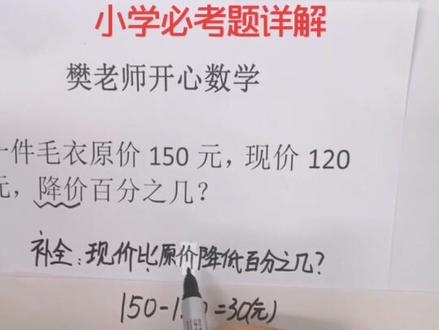 小学必考题详解
樊老师开心数学
一件毛衣原价 150 元，现价 120
元，降价百分之几？
补全：现价比原价降低百分之几？
150-1  =30(元)